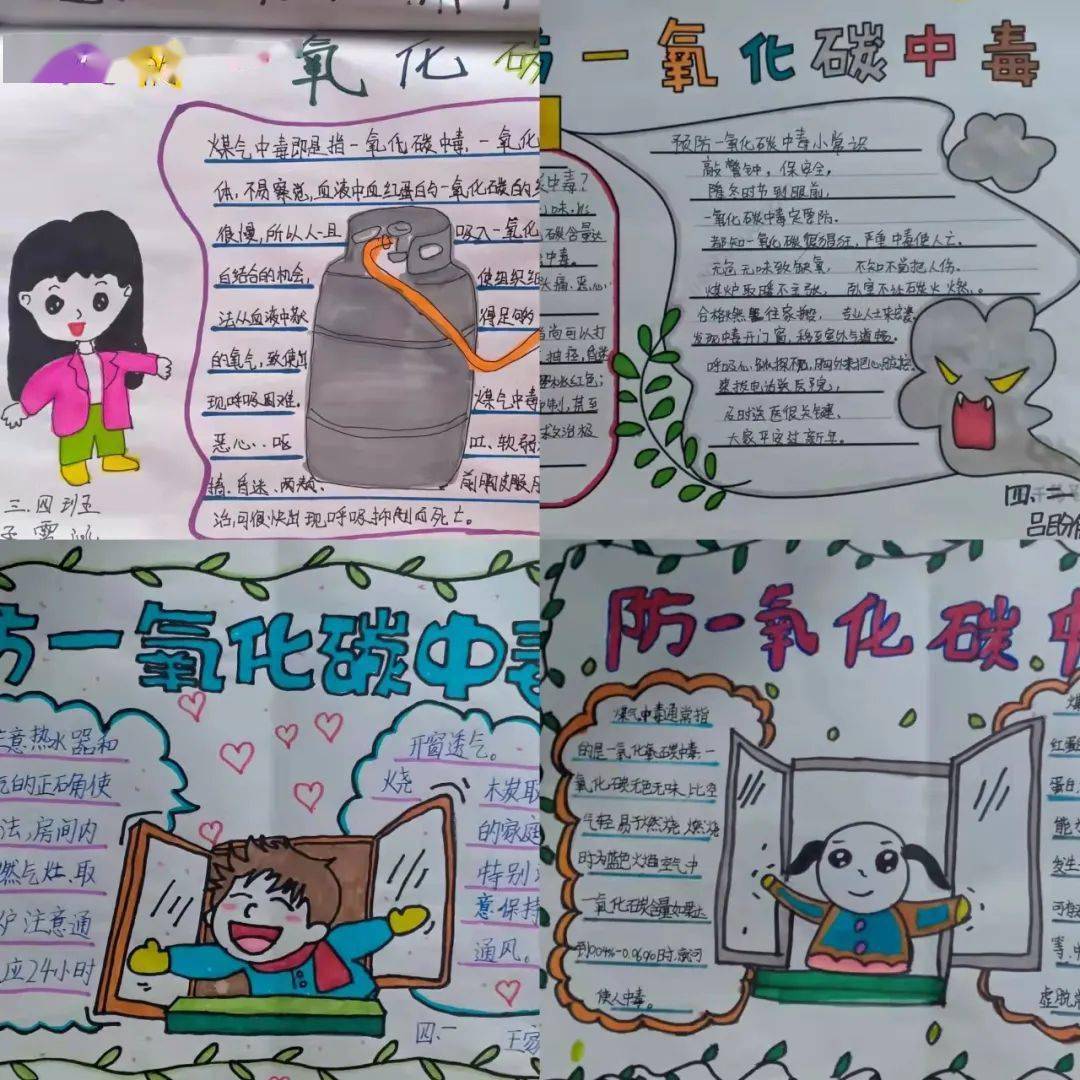 氧化碳
煤气中毒即是指一氧化碳中毒,一氧化
体,不易察觉,血液中血红蛋白与一氧化碳的结
很慢,所以人一旦 吸入一氧化
白结合的机会, 使组织细
法从血液中获 得足够
的氧气,致使出
现呼吸困难. 煤气中毒
恶心、呕 吐、软弱
搐.昏迷.两颊、 前胸皮肤
治,可很快出现呼吸抑制而死亡。
三.四班
防一氧化碳中毒
中毒?
碳含量达
中毒。
头痛.恶心.
尚可以打
救治极
预防一氧化碳中毒小常识
敲警钟,保安全,
隆冬时节到眼前,
一氧化碳中毒定要防.
都知一氧化碳很猖狂,严重中毒使人亡.
无色无味致缺氧, 不知不觉把人伤.
煤炉取暖不立张, 卧室不让碳火燃。
合格燃 往家搬, 专业人士来安装
发现中毒开门窗,移至室外与道畅.
呼吸心跳探 ,胸外来把心脏按.
拨 电话送医院,
及时送医很关键,
大家平安过新年。
四、二
防一氧化碳中毒
注意热水器和
气的正确使
法,房间内
燃气灶.取
炉注意通
应24小时
开窗透气。
烧 木炭取
的家庭
特别
意保持
通风。
四、一
王家
防一氧化碳中
煤气中毒通常指
的是一氧化 碳中毒.一
氧化碳无色无味.比空
气轻.易于燃烧.燃烧
时为蓝色火焰.空气中
一氧化碳含量如果达
到0.04%-0.06%时.就可
使人中毒。
煤
红蛋
蛋白,
能
发生
可
等.中
虚脱